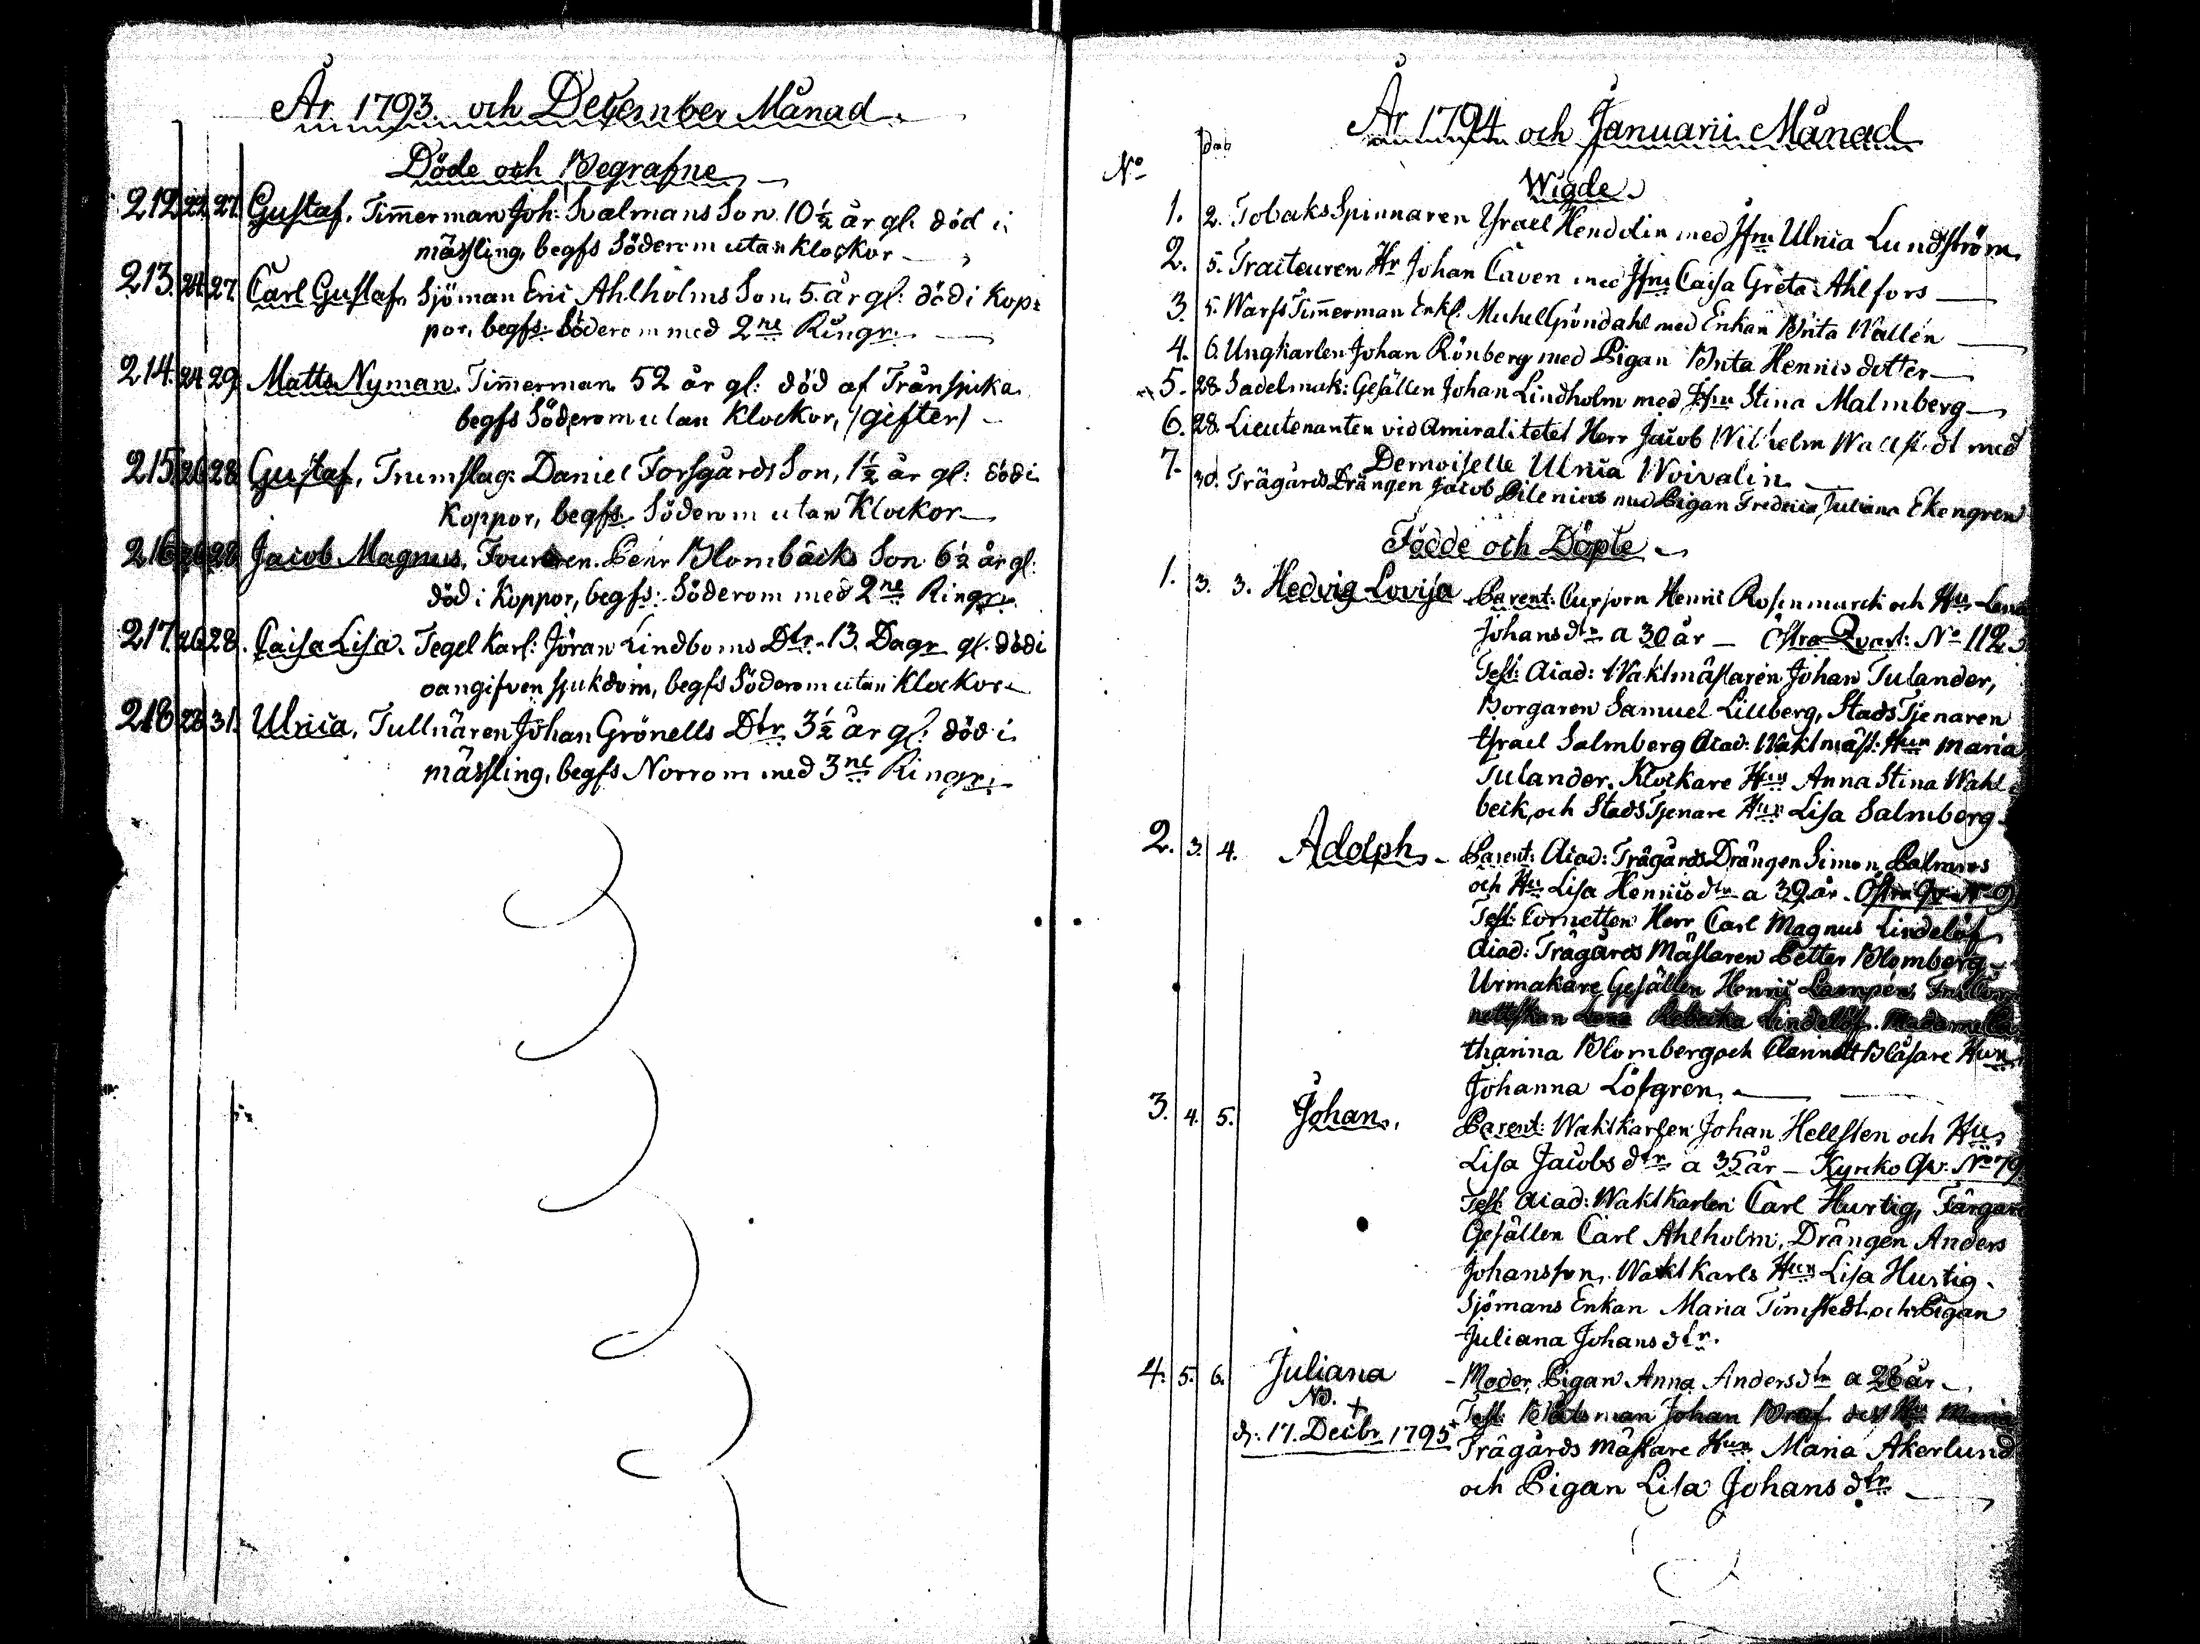 År 1793. och December Månad.
Döde och Begrafne
212. 22. 27. Gustaf. Tim̄erman Joh: Svalmans Son 10 ½ år gl: död i
mässling, begfs Söderom utan klockor
213. 24. 27. Carl Gustaf. Sjöman Eric Ahlholms Son 5. år gl: död i kop=
por, begfs Söderom med 2ne Ringr.
214. 24. 29. Matts Nyman. Tim̄erman 52 år gl: död af Trånsjuka
begfs Söderom utan Klockor, /gifter/
215. 26. 28. Gustaf, Trumslag: Daniel Forsgårds Son, 1½ år gl: död i
Koppor, begfs Söderom utan Klockor
216. 26. 28. Jacob Magnus, Blombäcks Son 6½ år gl:
död i Koppor, begfs: Söderom med 2ne Ringr.
217. 26. 28. Caisa Lisa. Tegel Karl: Jöran Lindboms Dtr. 13. Dagr gl. död i
oangifven sjukdom, begfs Söderom utan Klockor
218. 28. 31. Ulrica, Tullnären Johan Grönells Dtr. 3½ år gl: död i
mässling, begfs Norrom med 3ne Ringr.
År 1794 och Januarii Månad
No dab
Wigde
1. 2. Tobaks Spinnaren Israel Hendelin med Jfru Ulrica Lundström
2. 5. Traiteuren Hr Johan Caven med Jfru Caisa Greta Ahlfors
3. 5. Warfs Tim̄erman Enkl. Michel Gröndahl med Enkan Brita Wallén
4. 6. Ungkarlen Johan Rönberg med Pigan Brita Henricsdotter
5. 28. Sadelmak: Gesällen Johan Lindholm med Jfru Stina Malmberg
6. 28. Lieutenanten vid Amiralitetet Herr Jacob Wilhelm Wallstedt med
Demoiselle Ulrica Woivalin
7. 30. Trägårds Drängen Jacob Pilenius med Pigan Fredrica Juliana Ekengren
Födde och Döpte
1. 3. 3. Hedvig Lovisa Parent: Henric Rosenmarck och Hu Lena
Johansdtr a 30 år — Östra Qvart: No 112
Test: Acad: Waktmästaren Johan Tulander,
Borgaren Samuel Lillberg, Stads Tjenaren
Israel Salmberg Acad: Waktmäst: Hun Maria
Tulander, Klockare Hun Anna Stina Wahl
beck, och Stads Tjenare Hun Lisa Salmberg
2. 3. 4. Adolph Parent: Acad: Trägårds Drängen Simon Palmros
och Hu Lisa Henricsdtr a 39 år. Östra Qv. No 9
Test: Cornetten Herr Carl Magnus Lindelöf
Acad: Trägårds Mästaren Petter Blomberg
Urmakare Gesällen Henric Lampén, Fru Cor
nettskan Lena Rebecka Lindelöf. Madame Ca
tharina Blomberg och Clarinett Blåsare Hun
Johanna Löfgren.
3. 4. 5. Johan. Parent: Waktkarlen Johan Hellsten och Hu
Lisa Jacobsdtr a 35 år — Kyrko Qv. No 79
Test: Acad: Waktkarlen Carl Hurtig, Färgare
Gesällen Carl Ahlholm, Drängen Anders
Johansson, Waktkarls Hun Lisa Hurtig
Sjömans Enkan Maria Timstedt och Pigan
Juliana Johansdtr.
4. 5. 6. Juliana Moder, Pigan Anna Andersdtr a 28 år
No. +
d. 17. Decbr 1795
Test: Båtsman Johan Braf dess Hu Maria
Trägårds mästare Hun Maria Åkerlund
och Pigan Lisa Johansdtr